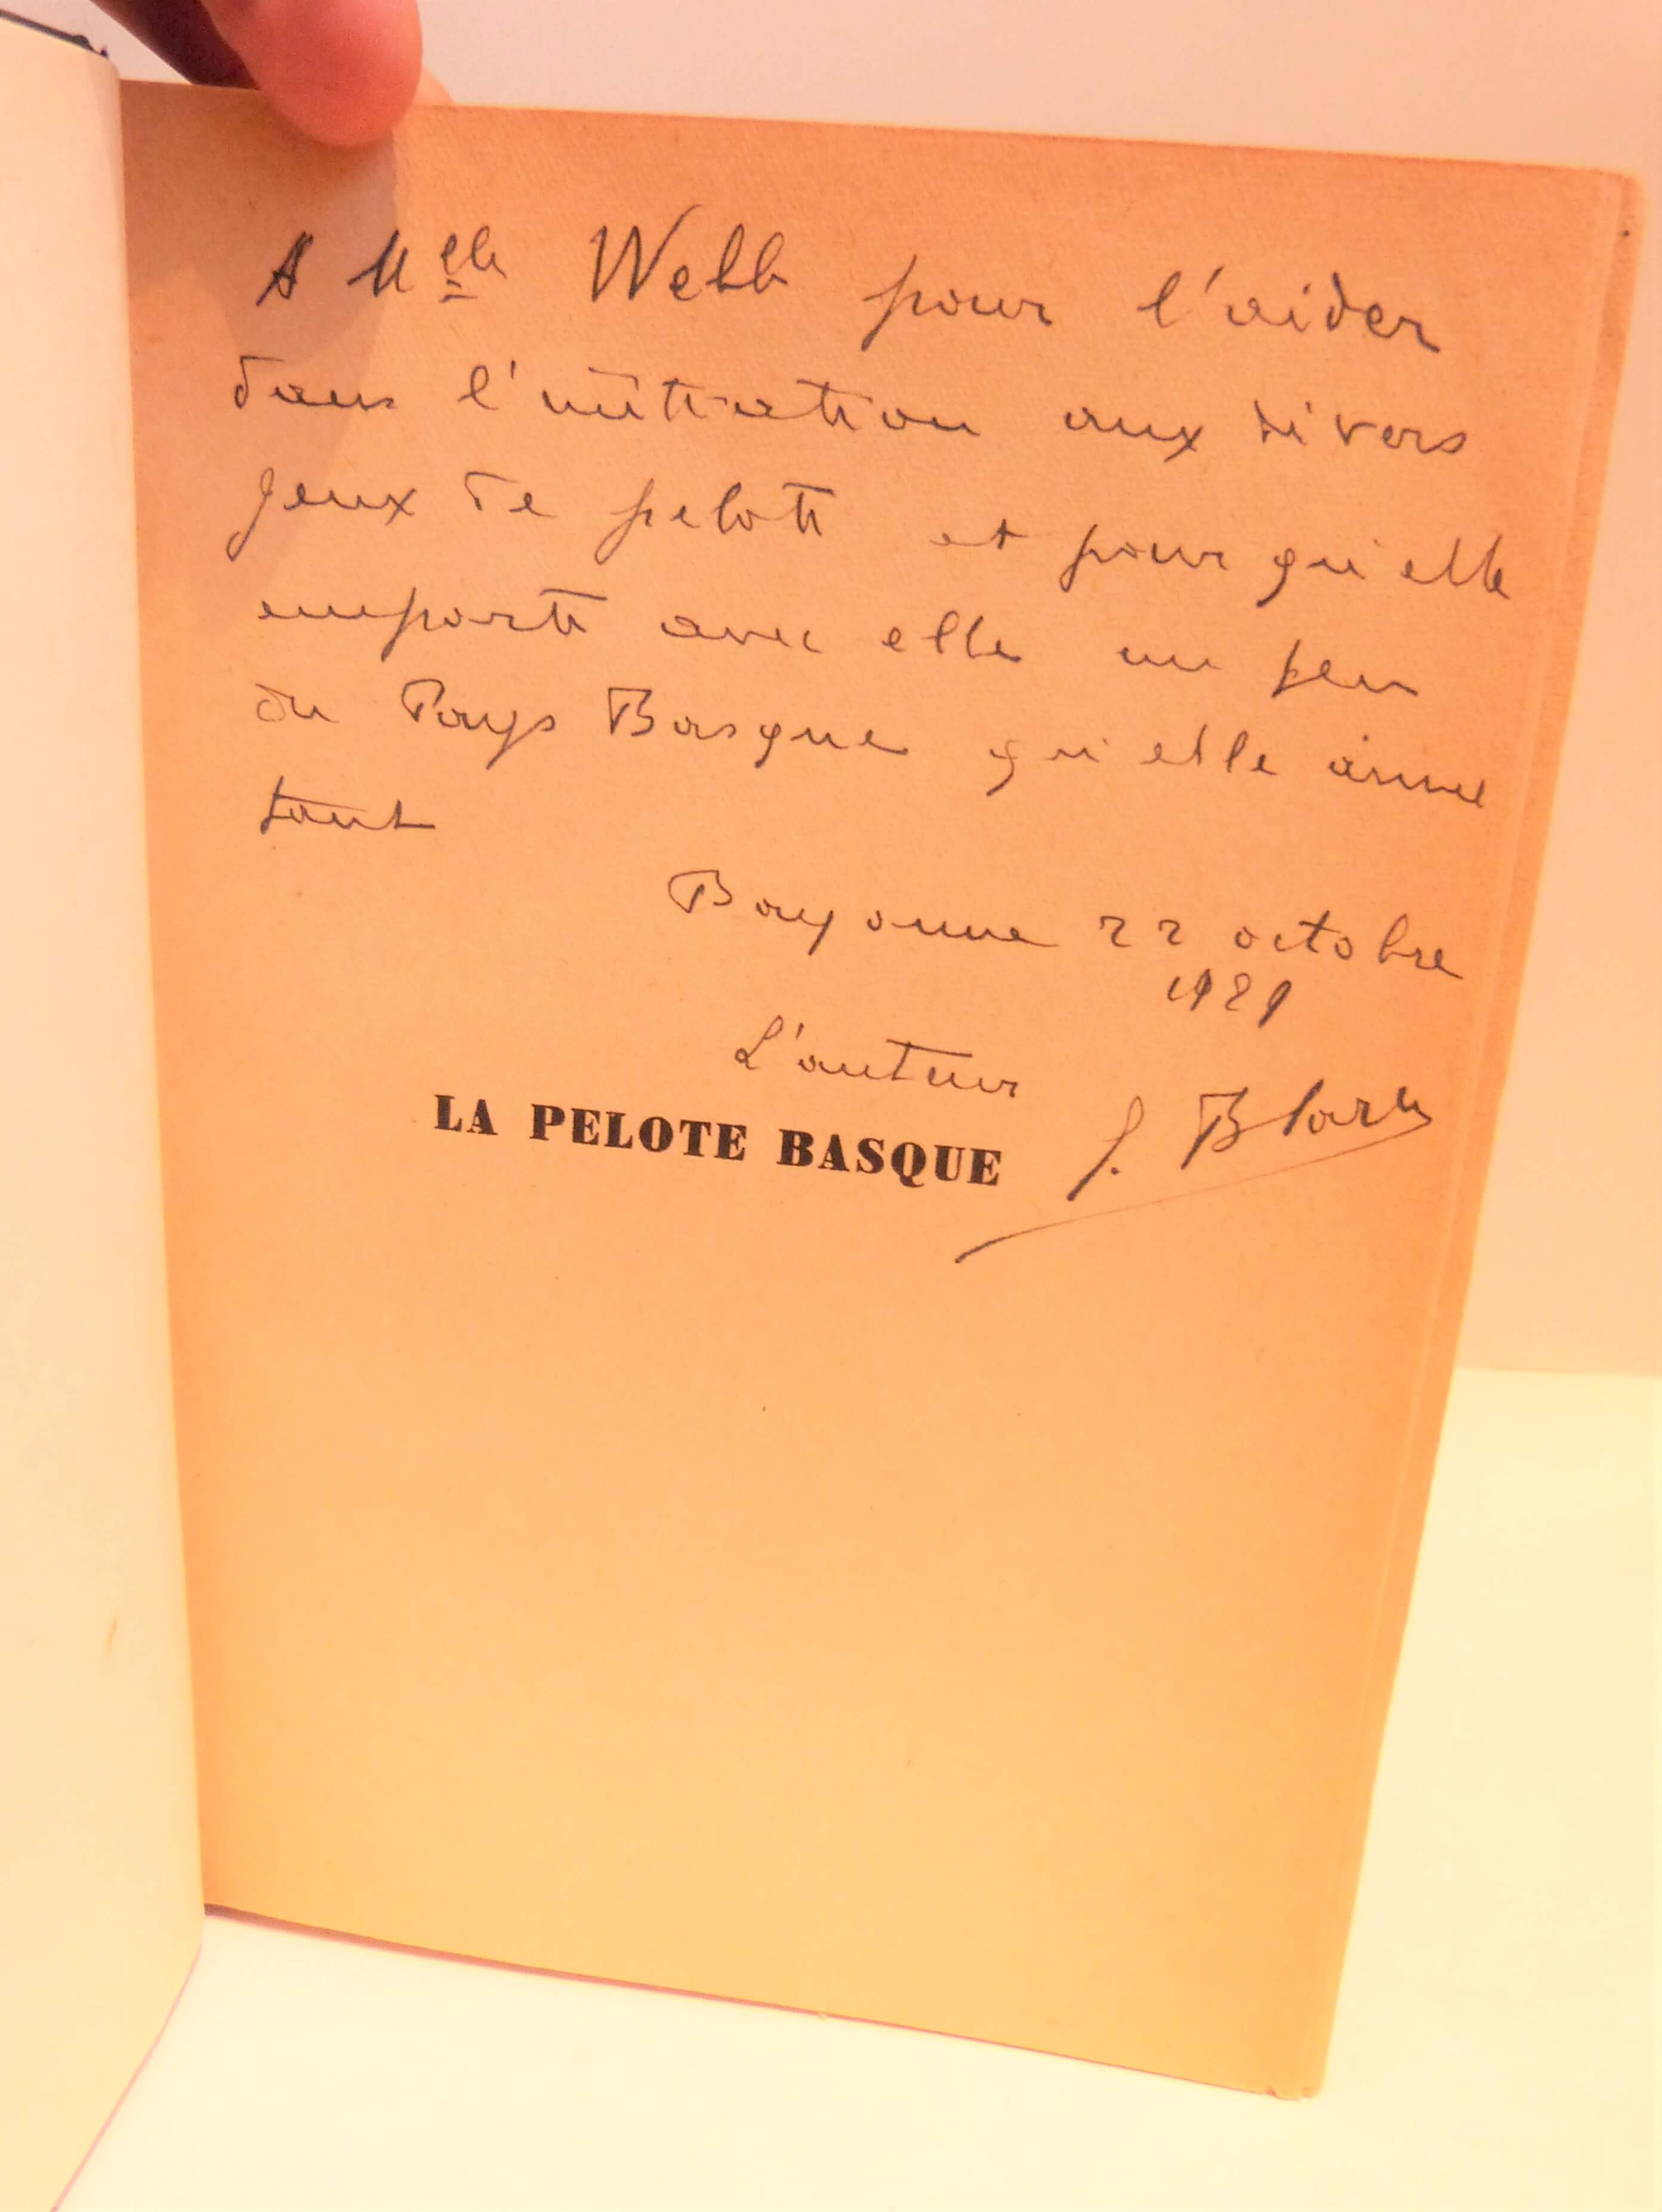 A Melle Webb pour l'aider
dans l'initiation aux divers
jeux de pelote et pour qu'elle
emporte avec elle un peu
du Pays Basque qu'elle aime
tant
Bayonne 22 octobre
1929
L'auteur
J. Blazy
LA PELOTE BASQUE